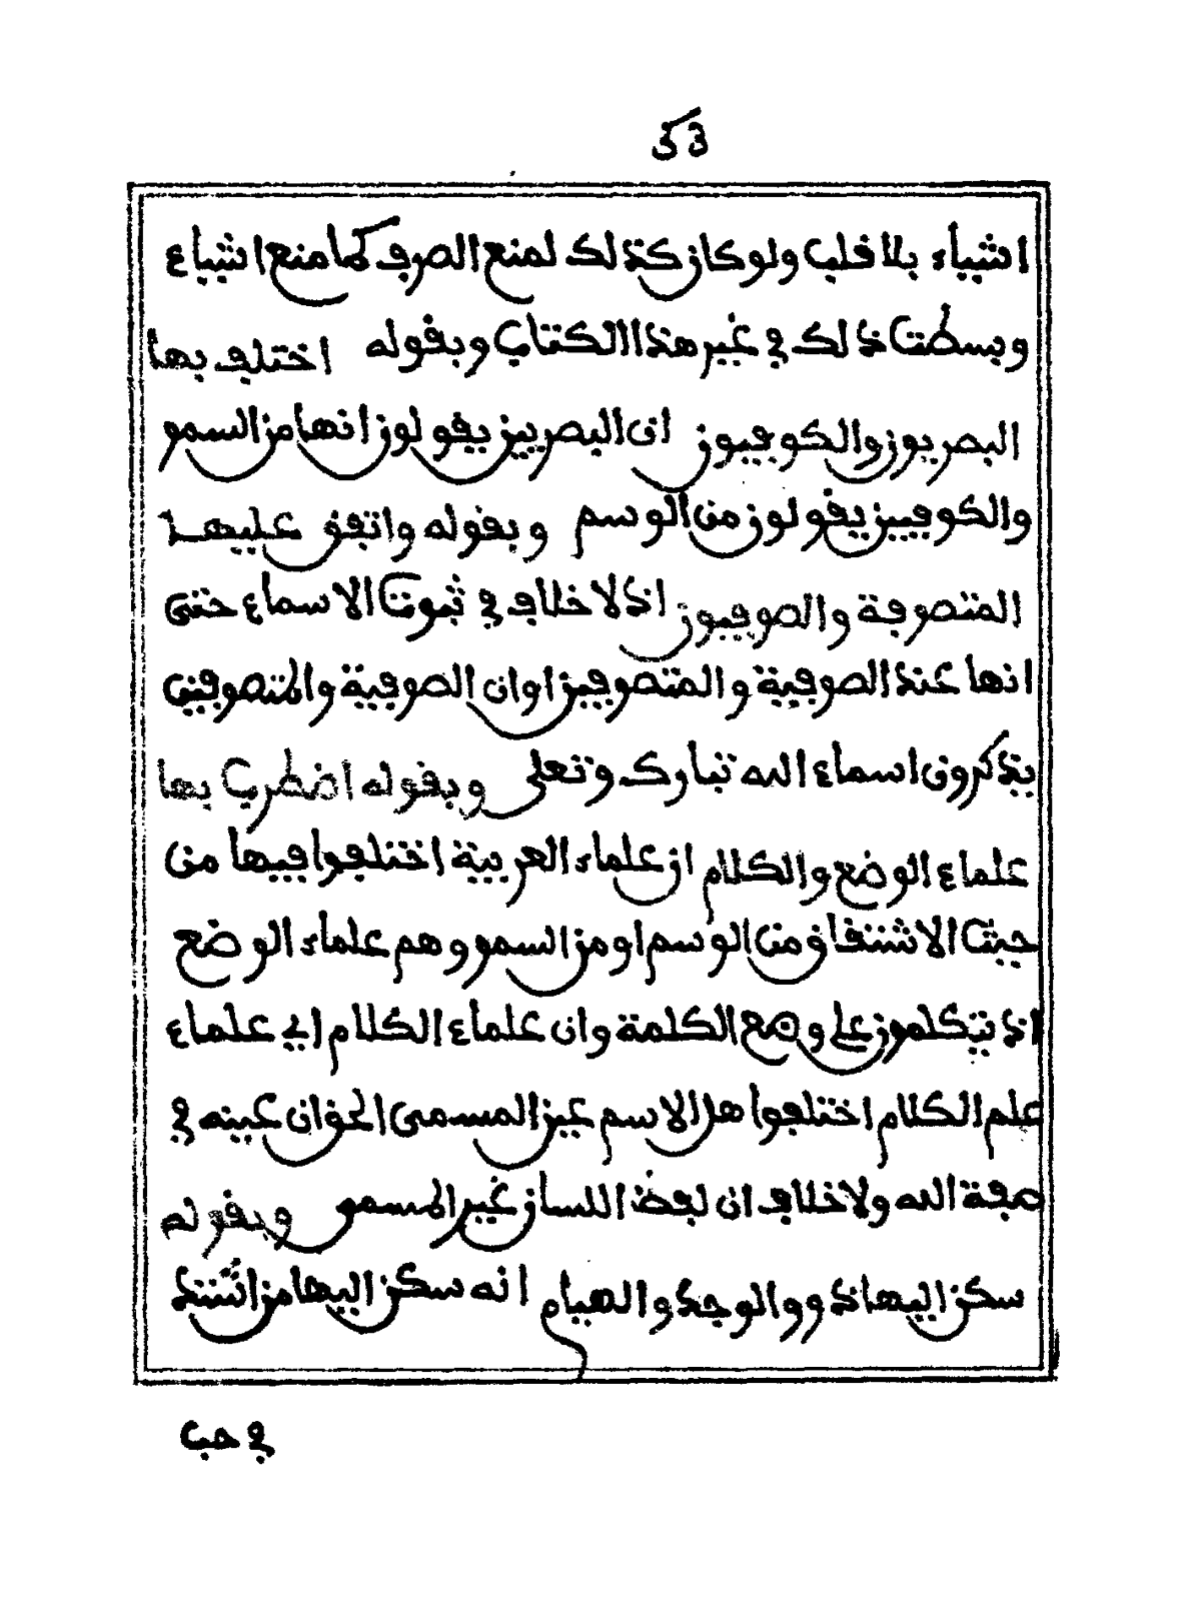 53
اشياء بلا قلب ولو كان كذلك لمنع الصرف كما منع اشياء
وبسطت ذلك في غير هذا الكتاب وبقوله اختلف بها
البصريون والكوفيون ان البصريين يقولون انها من السمو
والكوفيين يقولون من الوسم وبقوله واتفق عليها
المتصوفة والصوفيون اذ لا خلاف في ثبوت الاسماء حتى
انها عند الصوفية والمتصوفين اوان الصوفية والمتصوفين
يذكرون اسماء الله تبارك وتعلى وبقوله اضطرب بها
علماء الوضع والكلام ان علماء العربية اختلفوا فيها من
حيث الاشتقاق من الوسم او من السمو وهم علماء الوضع
اذ يتكلمون على وضع الكلمة وان علماء الكلام اي علماء
علم الكلام اختلفوا هل الاسم عين المسمى الحق ان عينه في
صفة الله ولا خلاف ان لفظ اللسان غير المسمى وبقوله
سكن اليها ذوو الوجد والهيام انه سكن اليها من اشتد
في حب